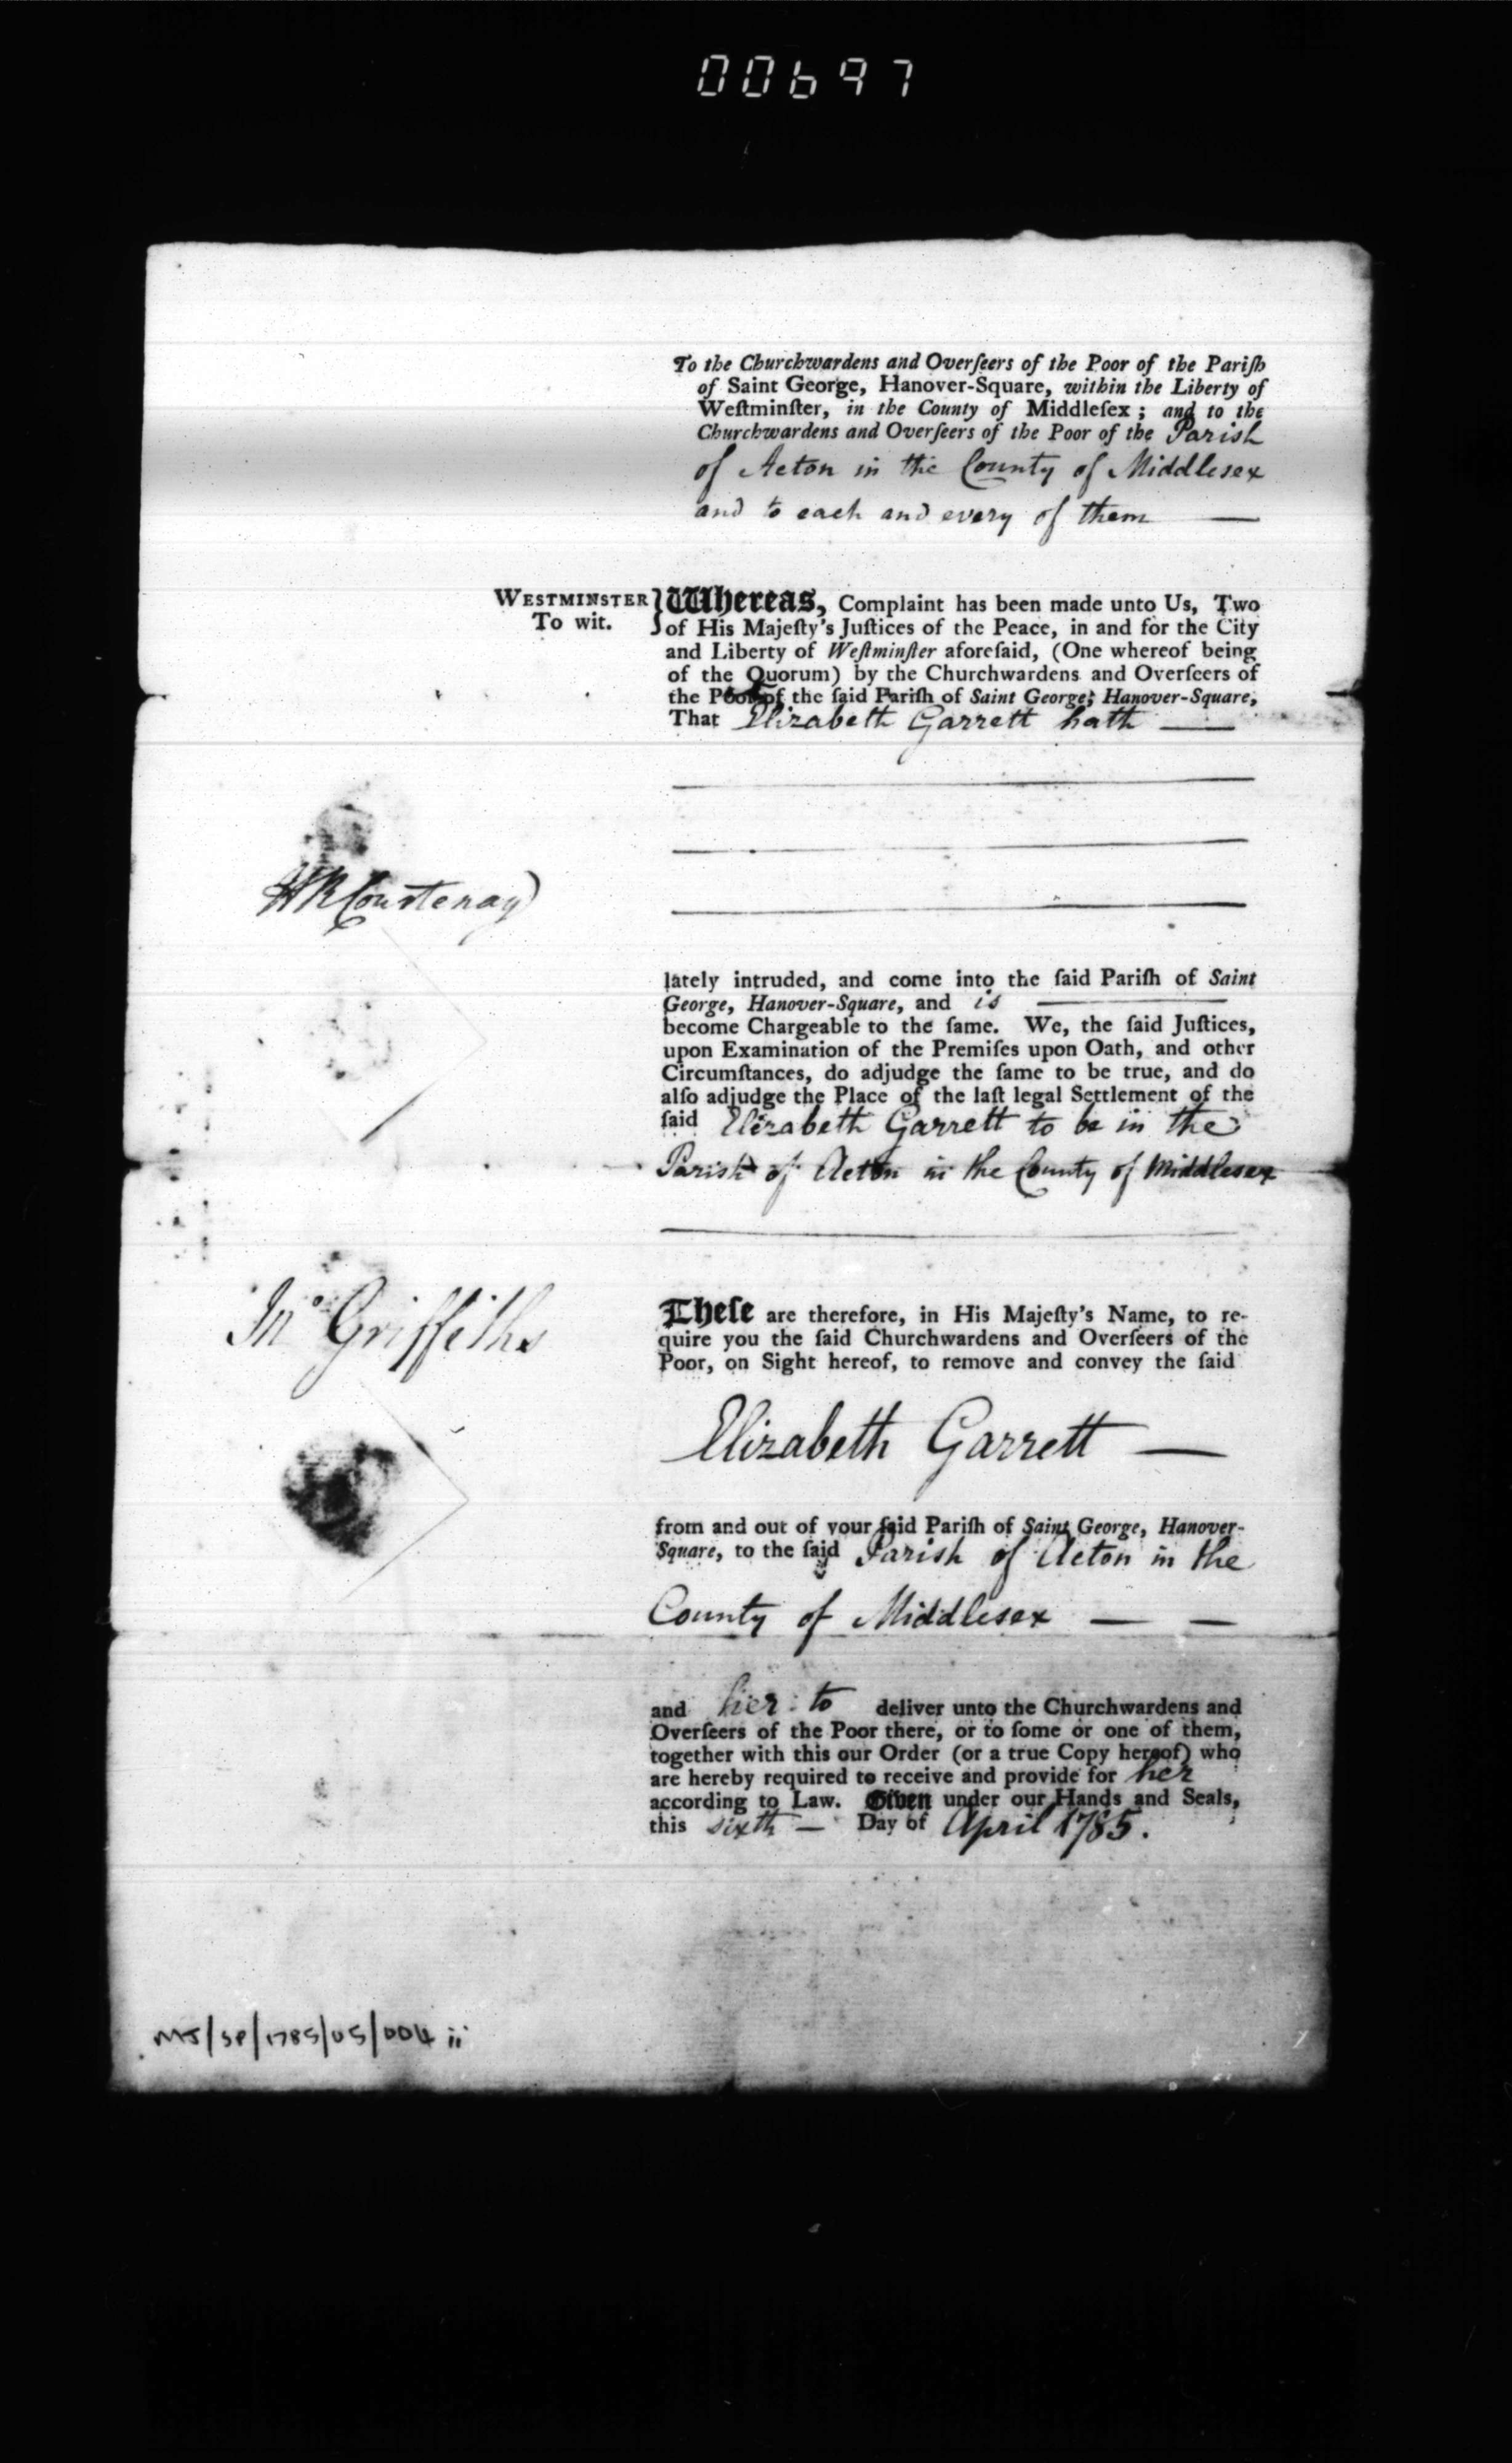 00697
To the Churchwardens and Overſeers of the Poor of the Pariſh
of Saint George, Hanover-Square, within the Liberty of
Weſtminſter, in the County of Middleſex; and to the
Churchwardens and Overſeers of the Poor of the Parish
of Acton in the County of Middlesex
and to each and every of them —
WESTMINSTER } Whereas, Complaint has been made unto Us, Two
To wit. of His Majeſty's Juſtices of the Peace, in and for the City
and Liberty of Weſtminſter aforeſaid, (One whereof being
of the Quorum) by the Churchwardens and Overſeers of
the Poor of the ſaid Pariſh of Saint George, Hanover-Square,
That Elizabeth Garrett hath —
HR Courtenay
lately intruded, and come into the ſaid Pariſh of Saint
George, Hanover-Square, and is —
become Chargeable to the ſame. We, the ſaid Juſtices,
upon Examination of the Premiſes upon Oath, and other
Circumſtances, do adjudge the ſame to be true, and do
alſo adjudge the Place of the laſt legal Settlement of the
ſaid Elizabeth Garrett to be in the
Parish of Acton in the County of Middlesex
Jno Griffiths
Theſe are therefore, in His Majeſty's Name, to re-
quire you the ſaid Churchwardens and Overſeers of the
Poor, on Sight hereof, to remove and convey the ſaid
Elizabeth Garrett —
from and out of your ſaid Pariſh of Saint George, Hanover-
Square, to the ſaid Parish of Acton in the
County of Middlesex — —
and her to deliver unto the Churchwardens and
Overſeers of the Poor there, or to ſome or one of them,
together with this our Order (or a true Copy hereof) who
are hereby required to receive and provide for her
according to Law. Given under our Hands and Seals,
this sixth — Day of April 1785.
MJ/SP/1785/05/004 ii